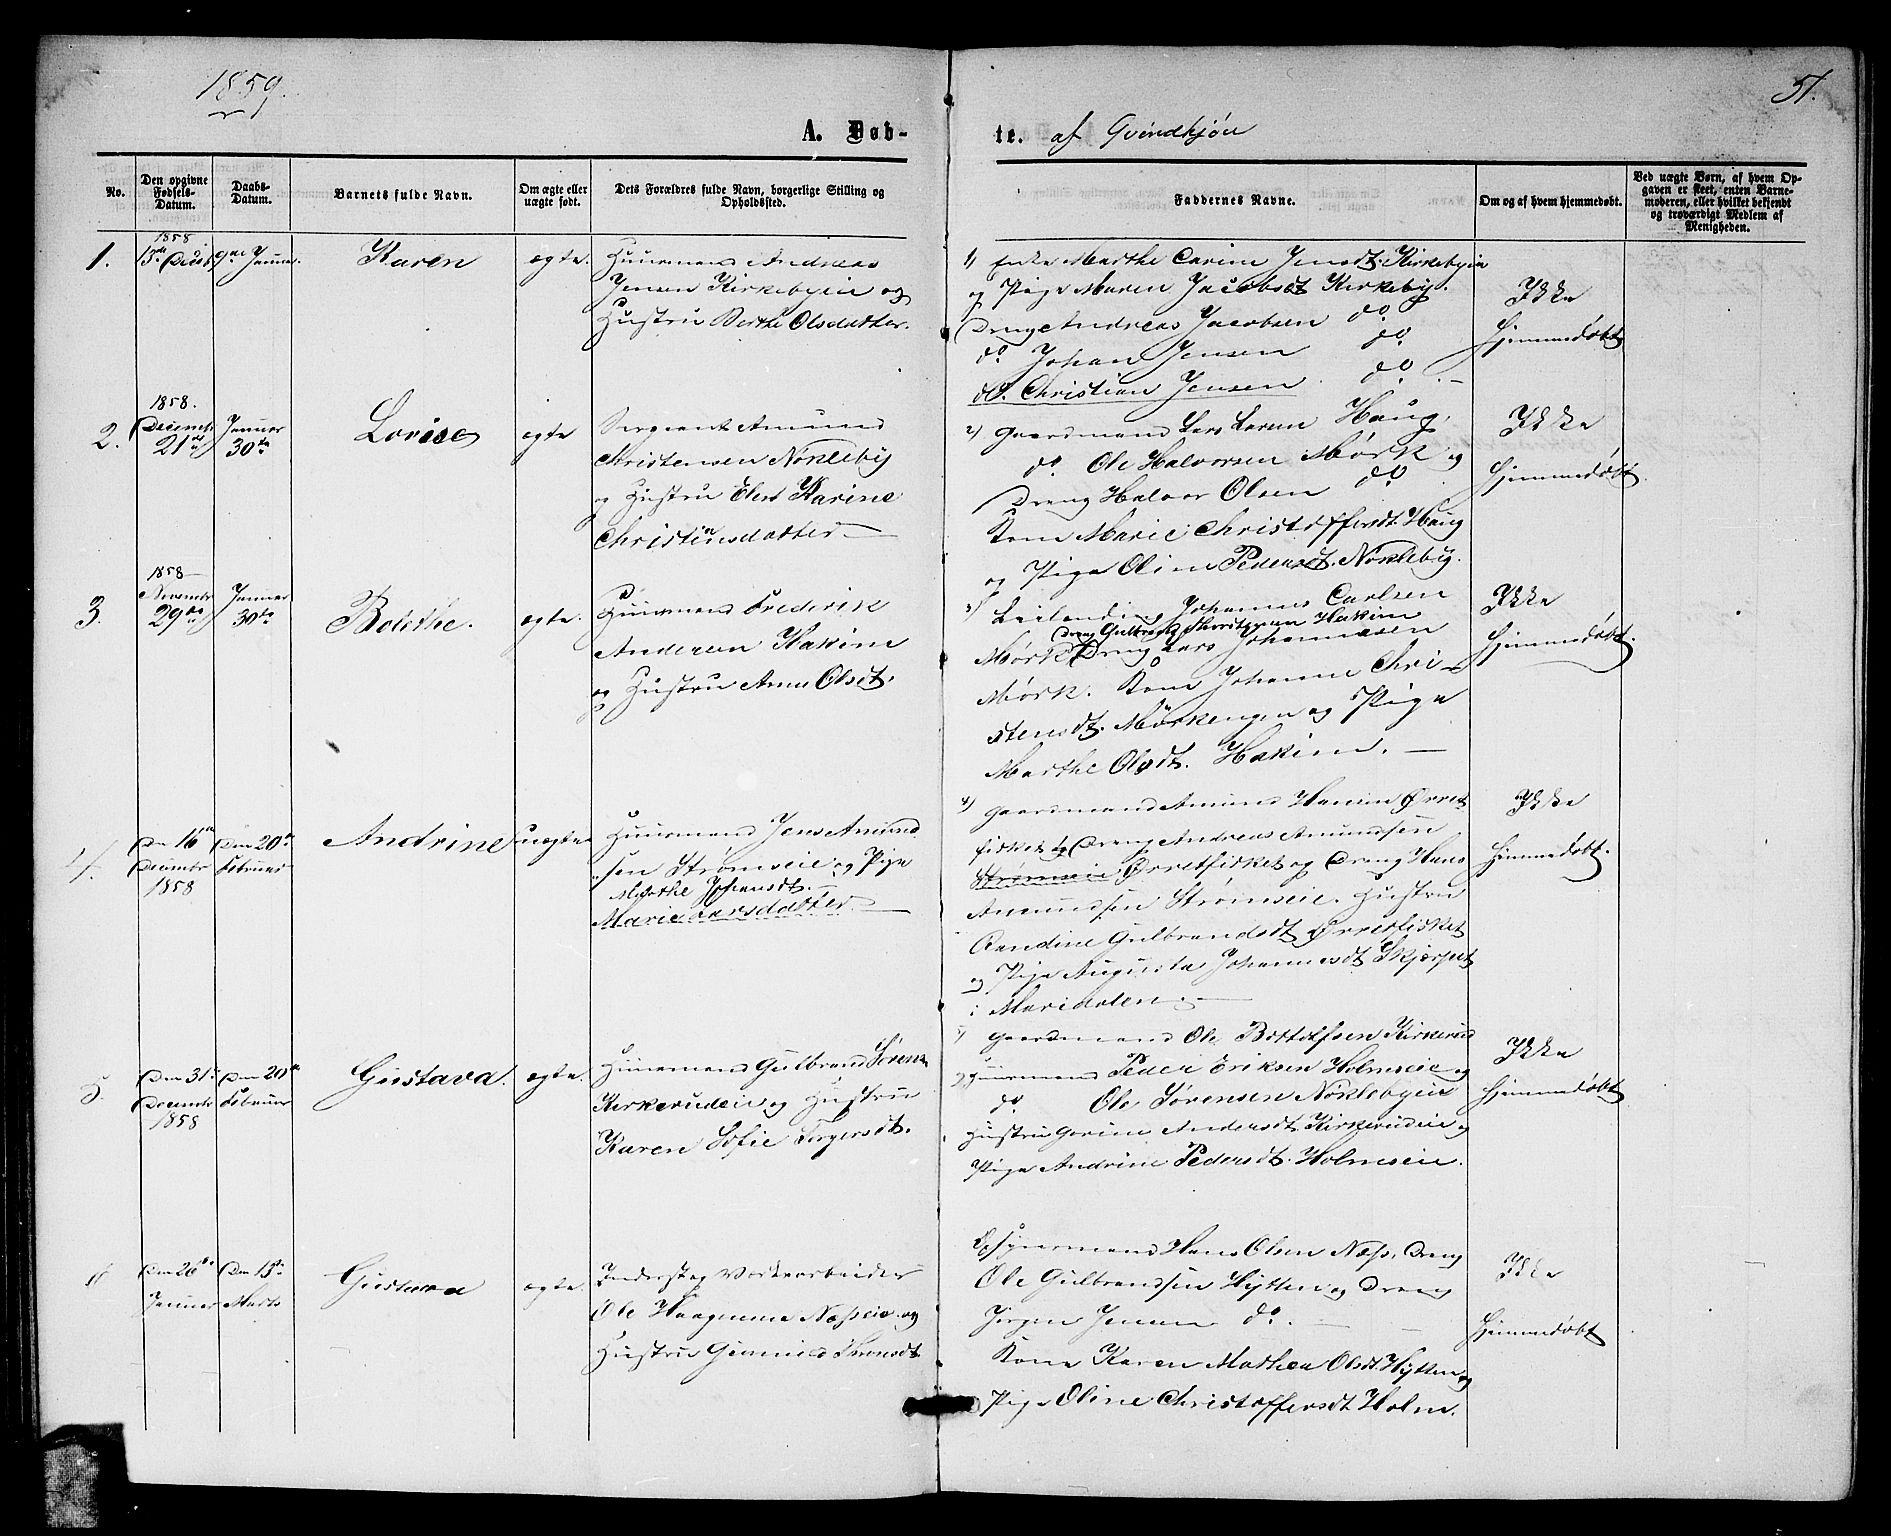 1859.
51.
A. Døb-
te. af Qvindkjøn
No.
Den opgivne Fødsels-Datum.
Daabs-Datum.
Barnets fulde Navn.
Om ægte eller uægte født.
Dets Forældres fulde Navn, borgerlige Stilling og Opholdssted.
Faddernes Navne.
Om og af hvem hjemmedøbt.
Ved uægte Børn, af hvem Opgaven er skeet, enten Barnemoderen, eller hvilket bekjendt og troværdigt Medlem af Menigheden.
1.
1858
13de Decb
9de Januar.
Karen
ægte.
Huusmand Andreas
Jensen Kirkebyeie og
Hustru Berthe Olsdatter.
1) Enke Marthe Carine Jensdt. Kirkebyeie
og Pige Maren Jacobsdt Kirkeby.
Dreng Andreas Jacobsen do.
do. Johan Jensen do.
do. Christian Jensen do. —
Ikke
Hjemmedøbt
2.
1858.
Decembr
21de
Januar
30te
Lovise
ægte
Sergeant Amund
Christensen Nøkleby
og Hustru Karine
Christiansdatter —
2) Gaardmand Lars Larsen Haug,
do. Ole Halvorsen Mørk og
Dreng Halvor Olsen do.
Kone Marie Christoffersdt. Haug
og Pige Oline Pedersdt. Nøkleby.
Ikke
Hjemmedøbt.
3.
1858
November
29de
Januar
30te
Bolethe.
ægte.
Huusmand Frederik
Andersen Hakine
og Hustru Anne Olsdt.
3) Leilænding Johannes Carlsen
Dreng Gulbrand Hakine
Mørk Dreng Lars Johannesen
Mørk. Kone Johanne Chri-
stensdt. Mørkengen og Pige
Marthe Olsdt. Hakine. —
Ikke
Hjemmedøbt.
4.
Den 16de
Decembr
1858
Den 20de
Februar
Andrine
uægte
Huusmand Jens Amund-
sen Strømseie og Pige
Marthe Johansdt.
Marie Larsdatter —
4) Gaardmand Amund Hansen Ørret
fisket og Dreng Andreas Amundsen
Strømseie Ørretfisket og Dreng Hans
Amundsen Strømseie. Hustru
Randine Gulbrandsdt Ørretfisket
og Pige Augusta Johannesdt Skjerpet
i Maridalen. —
Ikke
Hjemmedøbt.
5.
Den 31te
Decembr
1858
Den 20de
Februar
Gustava.
ægte.
Huusmand Gulbrand Sørens.
Kirkerudeie og Hustru
Karen Sofie Torgersdt.
5) Gaardmand Ole Bottolfsen Kirkerud
Huusmand Peder Eriksen Holmseie og
do. Ole Sørensen Nøklebyeie
Hustru Gorine Andersdt. Kirkerudeie og
Pige Andrine Pedersdt. Holmseie.
Ikke
Hjemmedøbt
6
Den 26de
Januar
Den 13de
Marts
Gustava
ægte.
Inderst og Værksarbeider
Ole Haagensen Næsseie og
Hustru Gunnild Thronsdt
Opsynsmand Hans Olsen Næss, Dreng
Ole Gulbrandsen Hytten og Dreng
Jørgen Jensen do. —
Kone Karen Mathea Olsdt. Hytten og
Pige Oline Christoffersdt Holm.
Ikke
Hjemmedøbt